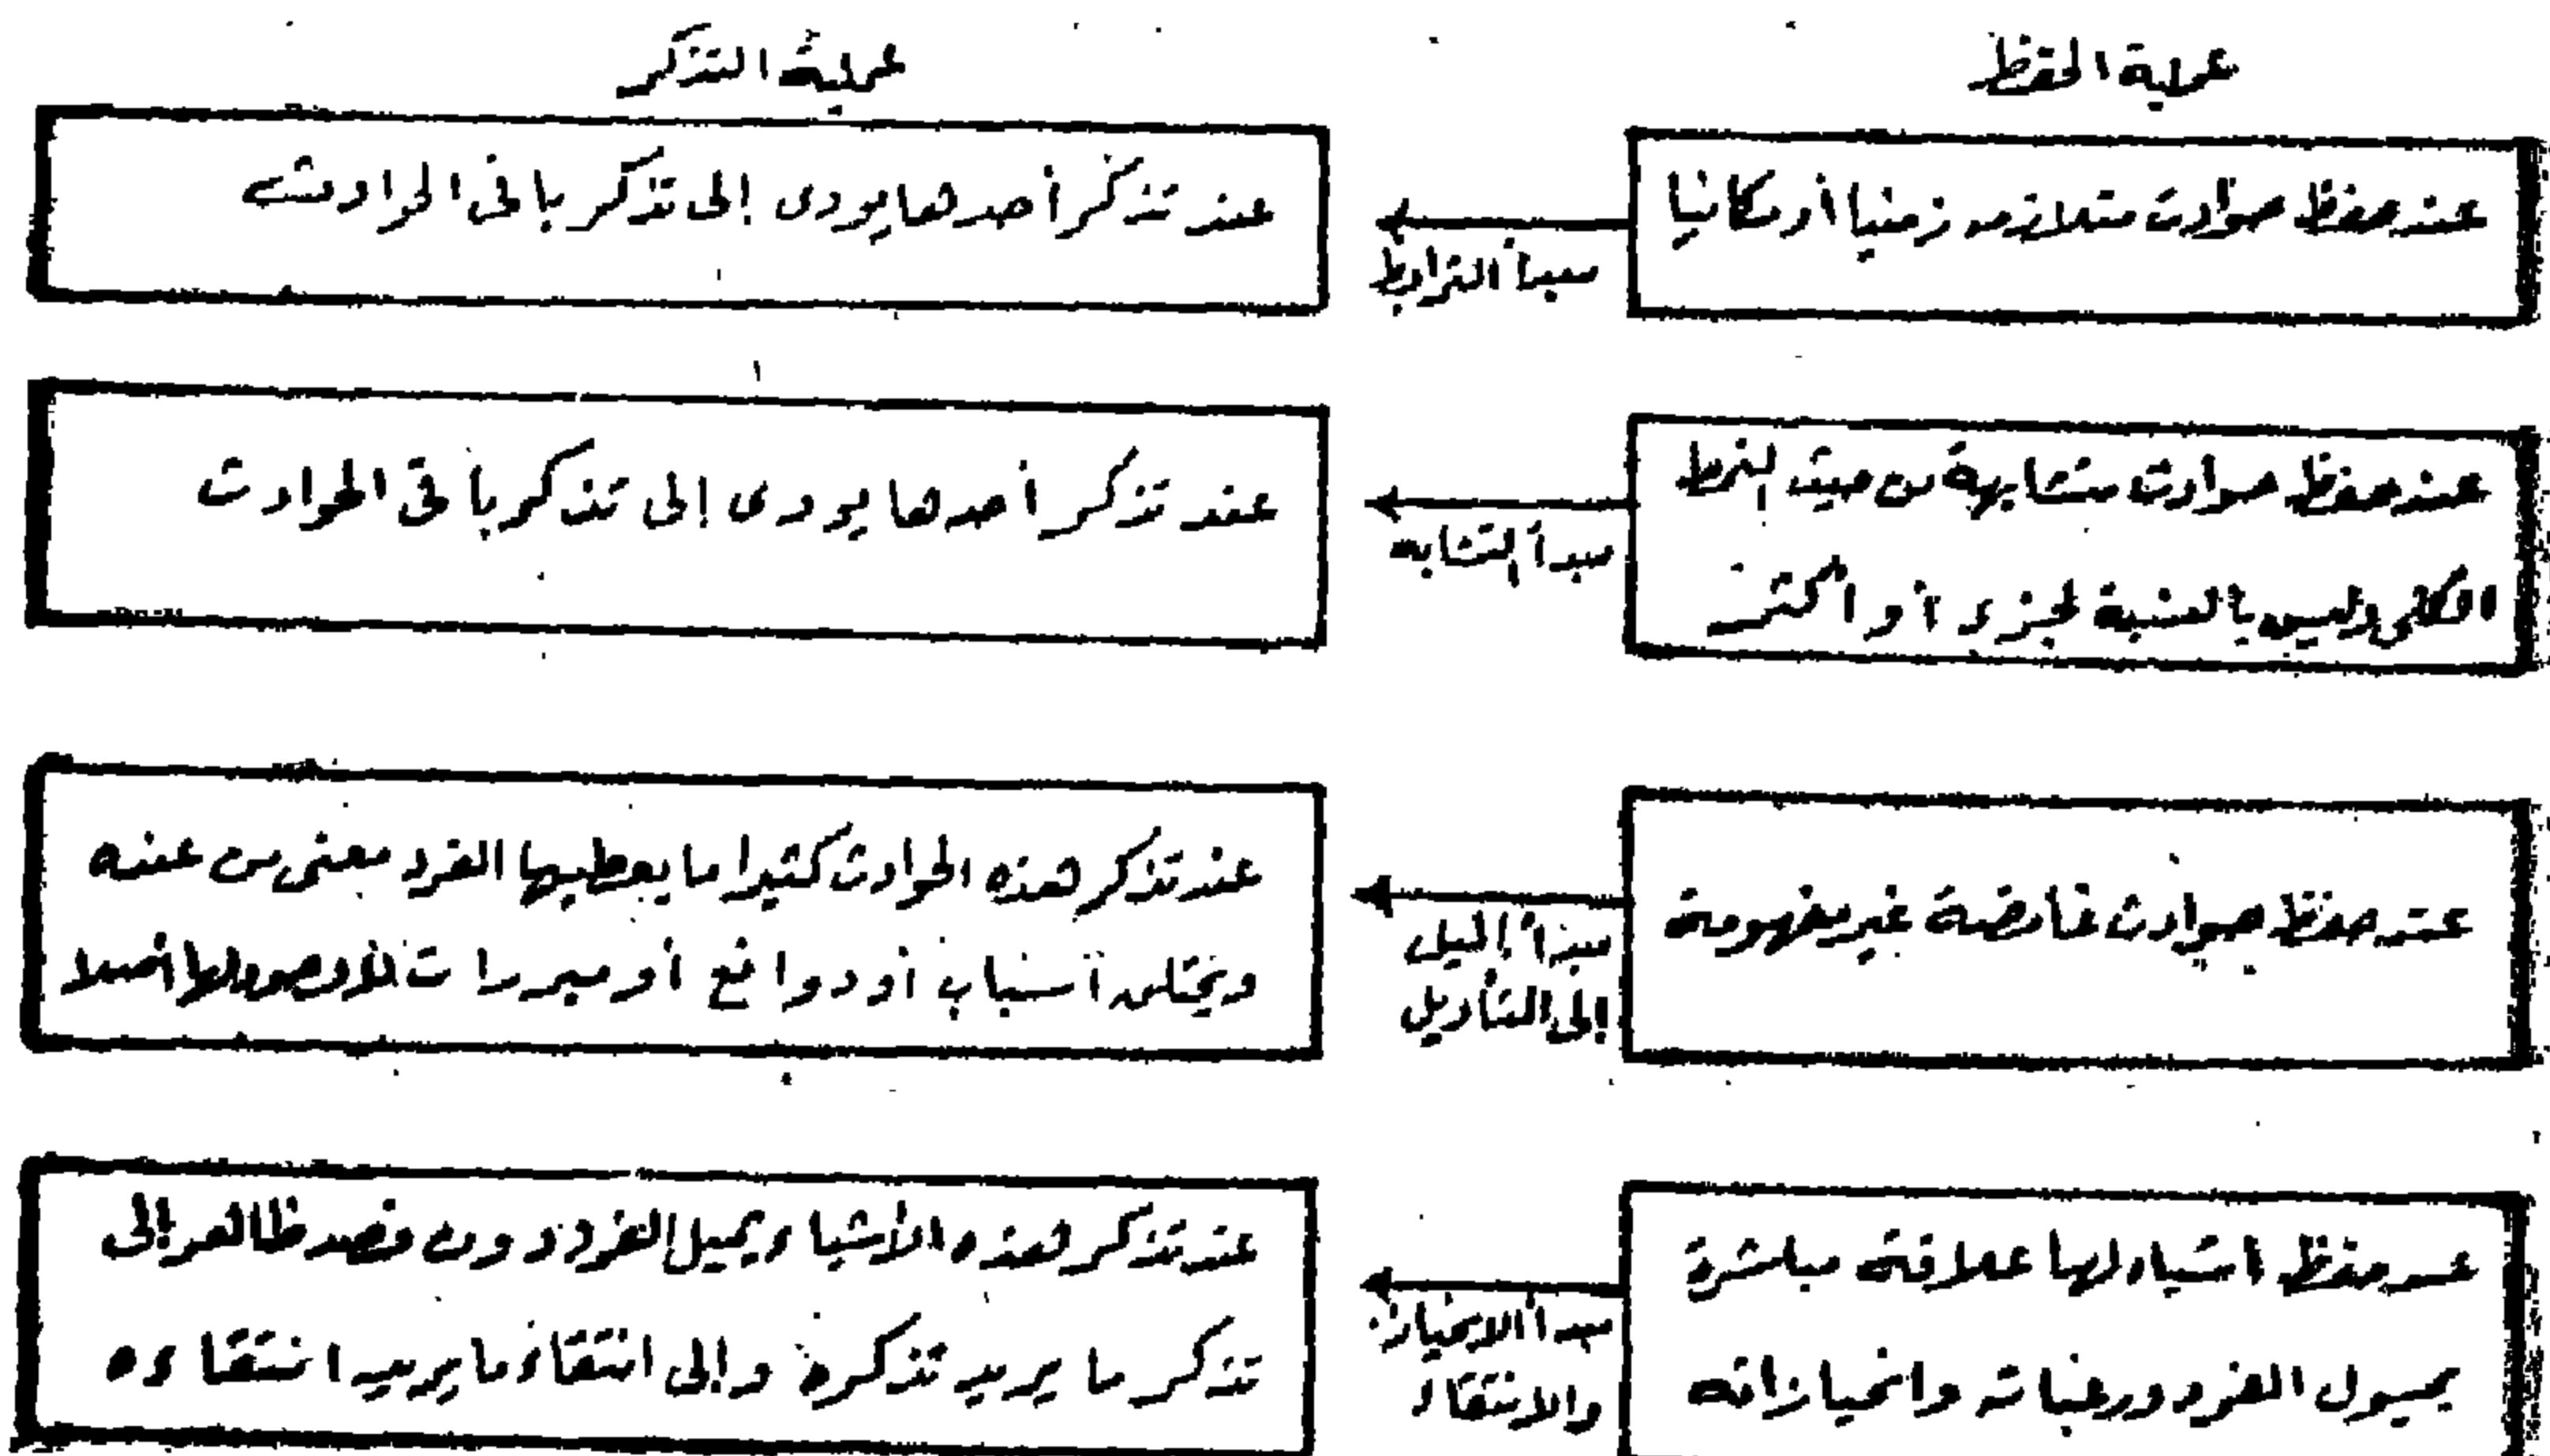 عملية الحفظ
عملية التذكر
عند حفظ حوادث متلازمه زمنيا أو مكانيا
مبدأ الترابط
عند تذكر أحدها يودى إلى تذكر باقى الحوادث
عند حفظ حوادث متشابهة من حيث النمط
الكلى وليس بالنسبة لجزء أو أكثر
مبدأ التشابه
عند تذكر أحدها يودى إلى تذكر باقى الحوادث
عند حفظ حوادث غامضة غير مفهومة
مبدأ الميل
إلى التأويل
عند تذكر هذه الحوادث كثيرا ما يعطيها الفرد معنى من عنده
ويختلق أسباب أو دوافع أو مبررات لها أصلا
عند حفظ أشياء لها علاقة مباشرة
بميول الفرد ورغباته وانحيازاته
مبدأ الانحياز
والانتقاء
عند تذكر هذه الأشياء يميل الفرد دون قصد ظاهر إلى
تذكر ما يريد تذكره وإلى انتقاء ما يريد انتقاءه